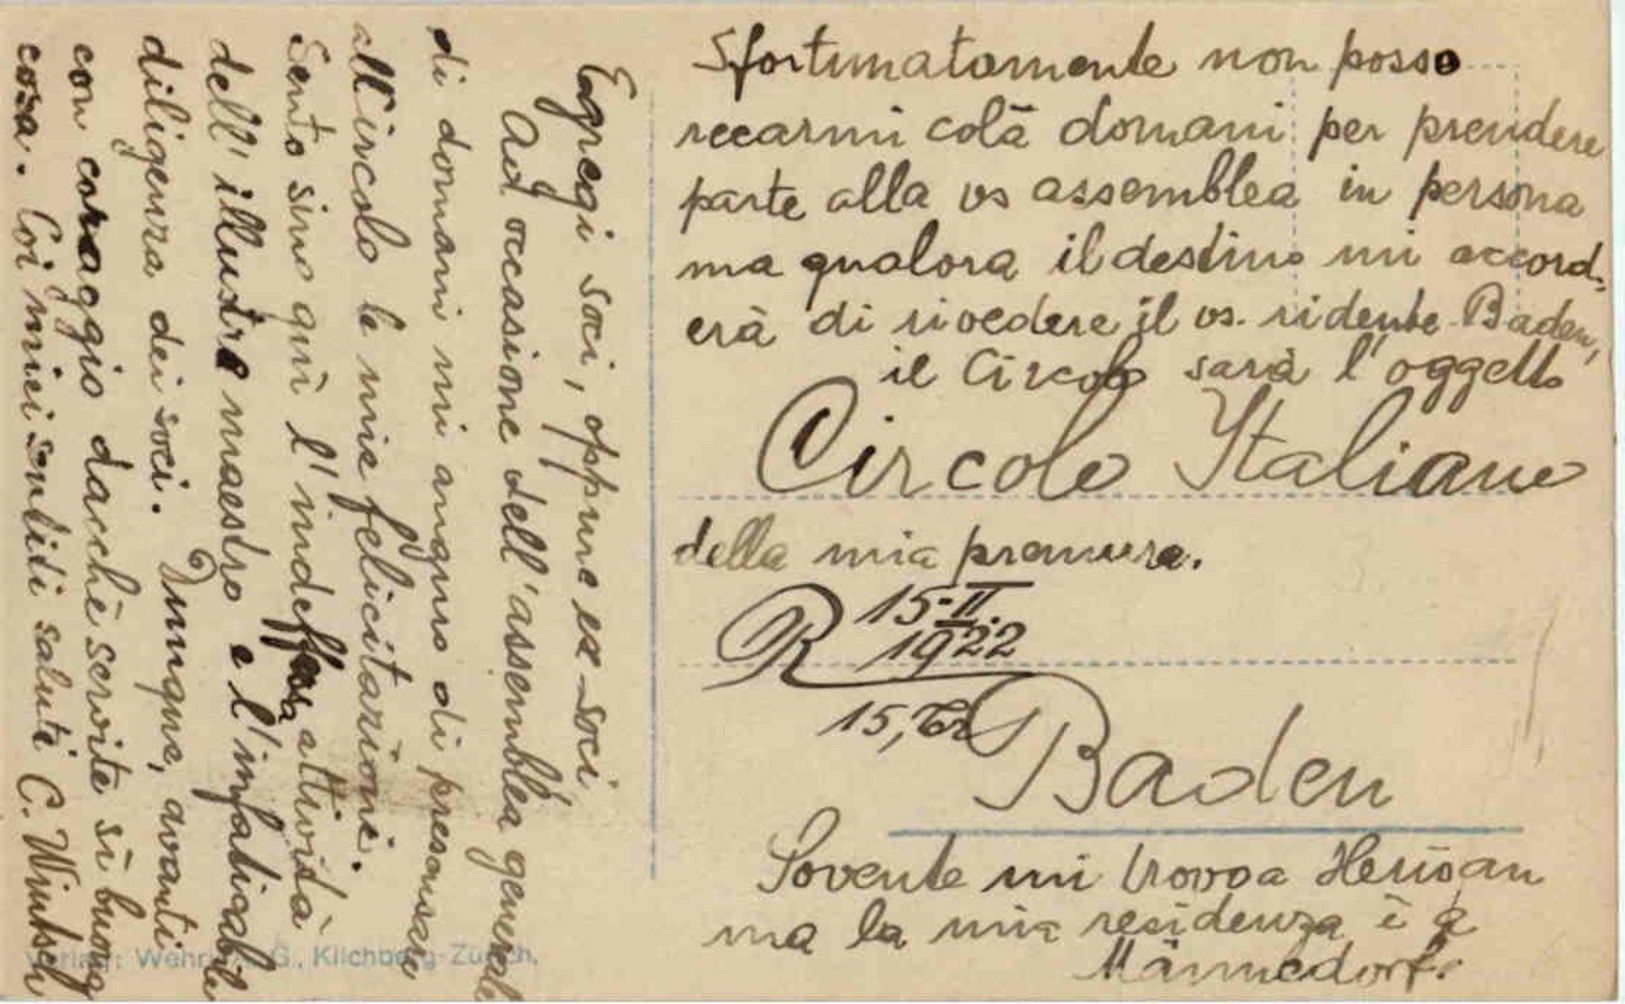 Egregi soci, oppure ex-soci
Ad occasione dell'assemblea generale
di domani mi auguro di presensare
all'Circolo le mie felicitazioni.
Sento sino quì l'indeffessa attività
dell'illustre maestro e l'infatigabile
diligenza dei soci. Dunque, avanti
con coraggio dacchè servite sì buona
cosa. Coi miei sentiti saluti C. Wintsch
Sfortunatamente non posso
recarmi colà domani per prendere
parte alla vs assemblea in persona
ma qualora il destino mi accord-
erà di rivedere il vs. ridente Baden,
il Circolo sarà l'oggetto
Circolo Italiano
della mia premura.
R 15-II.
1922
15,
Baden
Sovente mi trovo a Herisau
ma la mia residenza è a
Männedorf.
Verlag: Wehrli A.G., Kilchberg-Zürich.